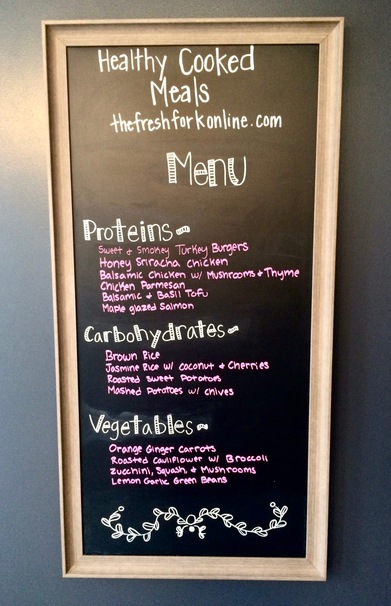 Healthy Cooked
Meals
thefreshforkonline.com
Menu
Proteins
Sweet & Smokey Turkey Burgers
Honey Sriracha Chicken
Balsamic Chicken w/ Mushrooms & Thyme
Chicken Parmesan
Balsamic & Basil Tofu
Maple glazed Salmon
Carbohydrates
Brown Rice
Jasmine Rice w/ Coconut & Cherries
Roasted Sweet Potatoes
Mashed Potatoes w/ chives
Vegetables
Orange Ginger Carrots
Roasted Cauliflower w/ Broccoli
Zucchini, Squash, & Mushrooms
Lemon Garlic Green Beans